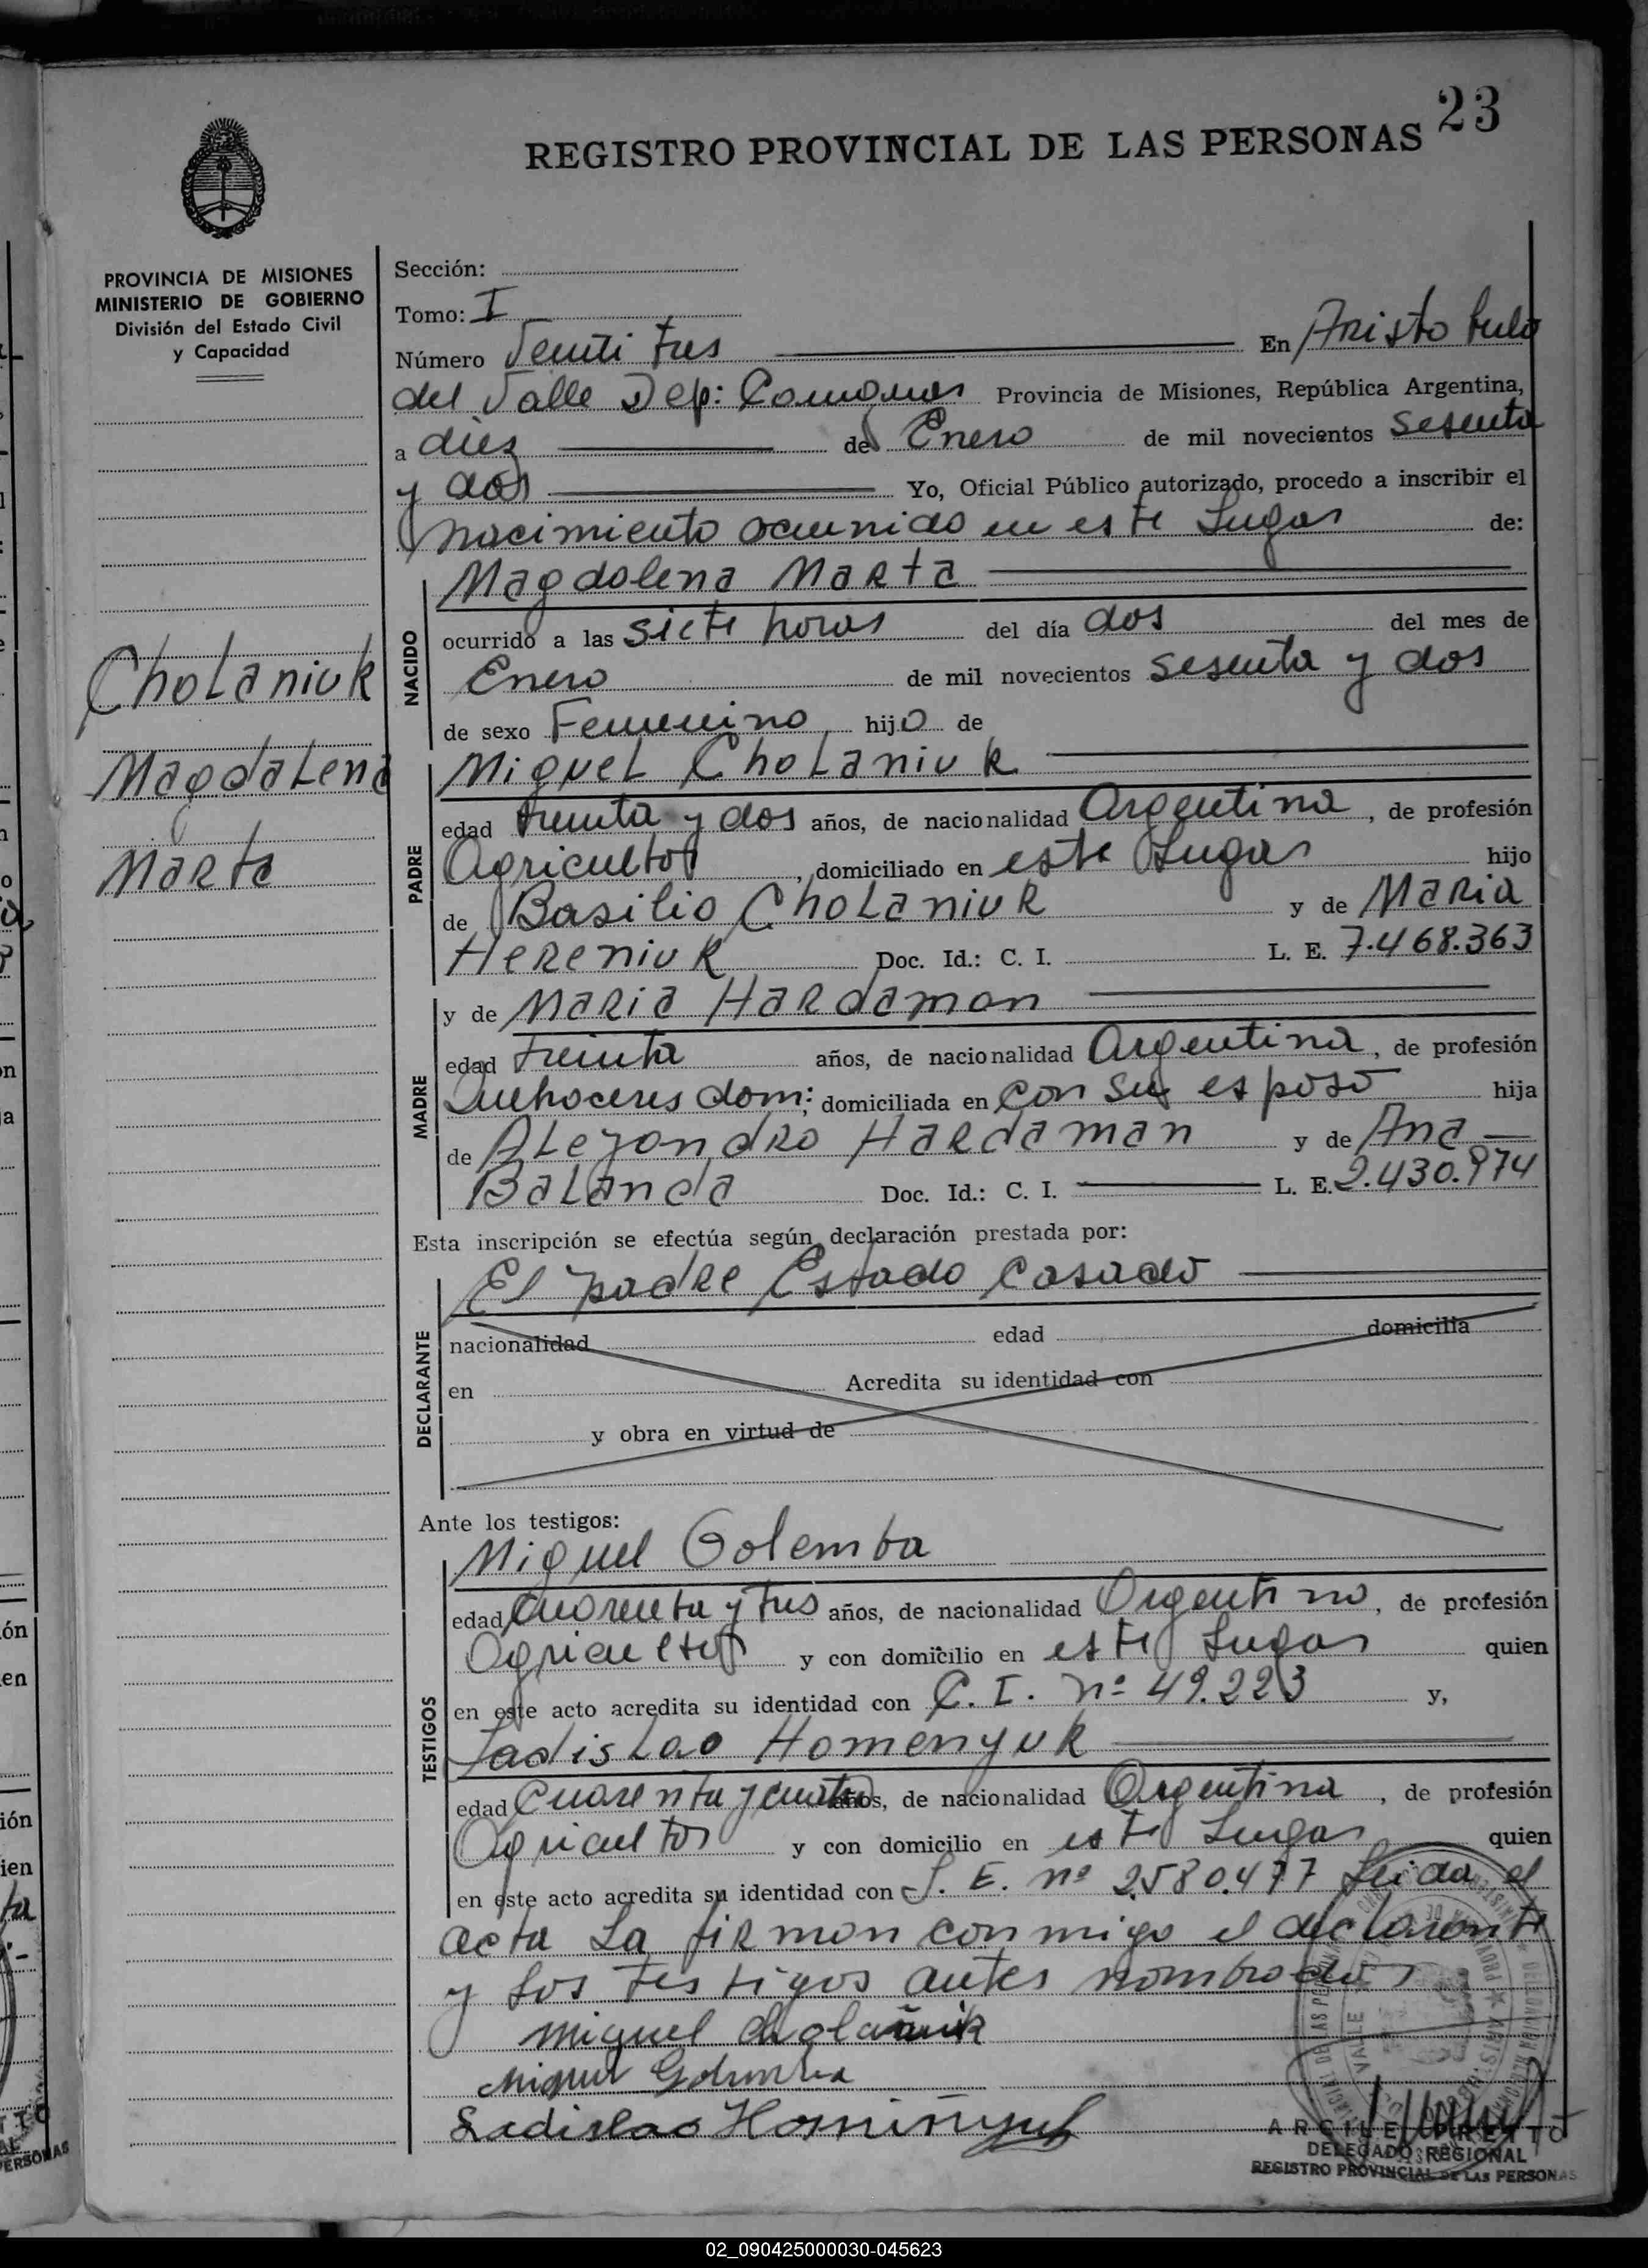 23
REGISTRO PROVINCIAL DE LAS PERSONAS
PROVINCIA DE MISIONES
MINISTERIO DE GOBIERNO
División del Estado Civil
y Capacidad
Cholaniuk
Magdalena
Marta
Sección:
Tomo: I
Número Veinti tres En Aristobulo
del Valle Dep: Provincia de Misiones, República Argentina,
a diez de Enero de mil novecientos sesenta
y dos Yo, Oficial Público autorizado, procedo a inscribir el
nacimiento ocurrido en este Lugar de:
NACIDO
Magdalena Marta
ocurrido a las siete horas del día dos del mes de
Enero de mil novecientos sesenta y dos
de sexo Femenino hijo de
PADRE
Miguel Cholaniuk
edad treinta y dos años, de nacionalidad Argentina, de profesión
Agricultor, domiciliado en este Lugar hijo
de Basilio Cholaniuk y de Maria
Hereniuk Doc. Id.: C. I. L. E. 7.468.363
MADRE
y de Maria Hardaman
edad treinta años, de nacionalidad Argentina, de profesión
Quehaceres dom: domiciliada en con su esposo hija
de Alejandro Hardaman y de Ana
Balanda Doc. Id.: C. I. L. E. 2.430.974
Esta inscripción se efectúa según declaración prestada por:
DECLARANTE
El padre Estado Casado
nacionalidad edad domicilia
en Acredita su identidad con
y obra en virtud de
Ante los testigos:
TESTIGOS
Miguel Golemba
edad Cuarenta y tres años, de nacionalidad Argentino, de profesión
Agricultor y con domicilio en este Lugar quien
en este acto acredita su identidad con C. I. nº 49.223 y,
Ladislao Homenyuk
edad Cuarenta y cuatro años, de nacionalidad Argentina, de profesión
Agricultor y con domicilio en este Lugar quien
en este acto acredita su identidad con L. E. nº 2.580.477 Leida el
acta La firman conmigo el declarante
y Los testigos antes nombrados
Miguel Cholaniuk
Miguel Golemba
Ladislao Homiñyuk
DELEGADO REGIONAL
REGISTRO PROVINCIAL DE LAS PERSONAS
02_090425000030-045623